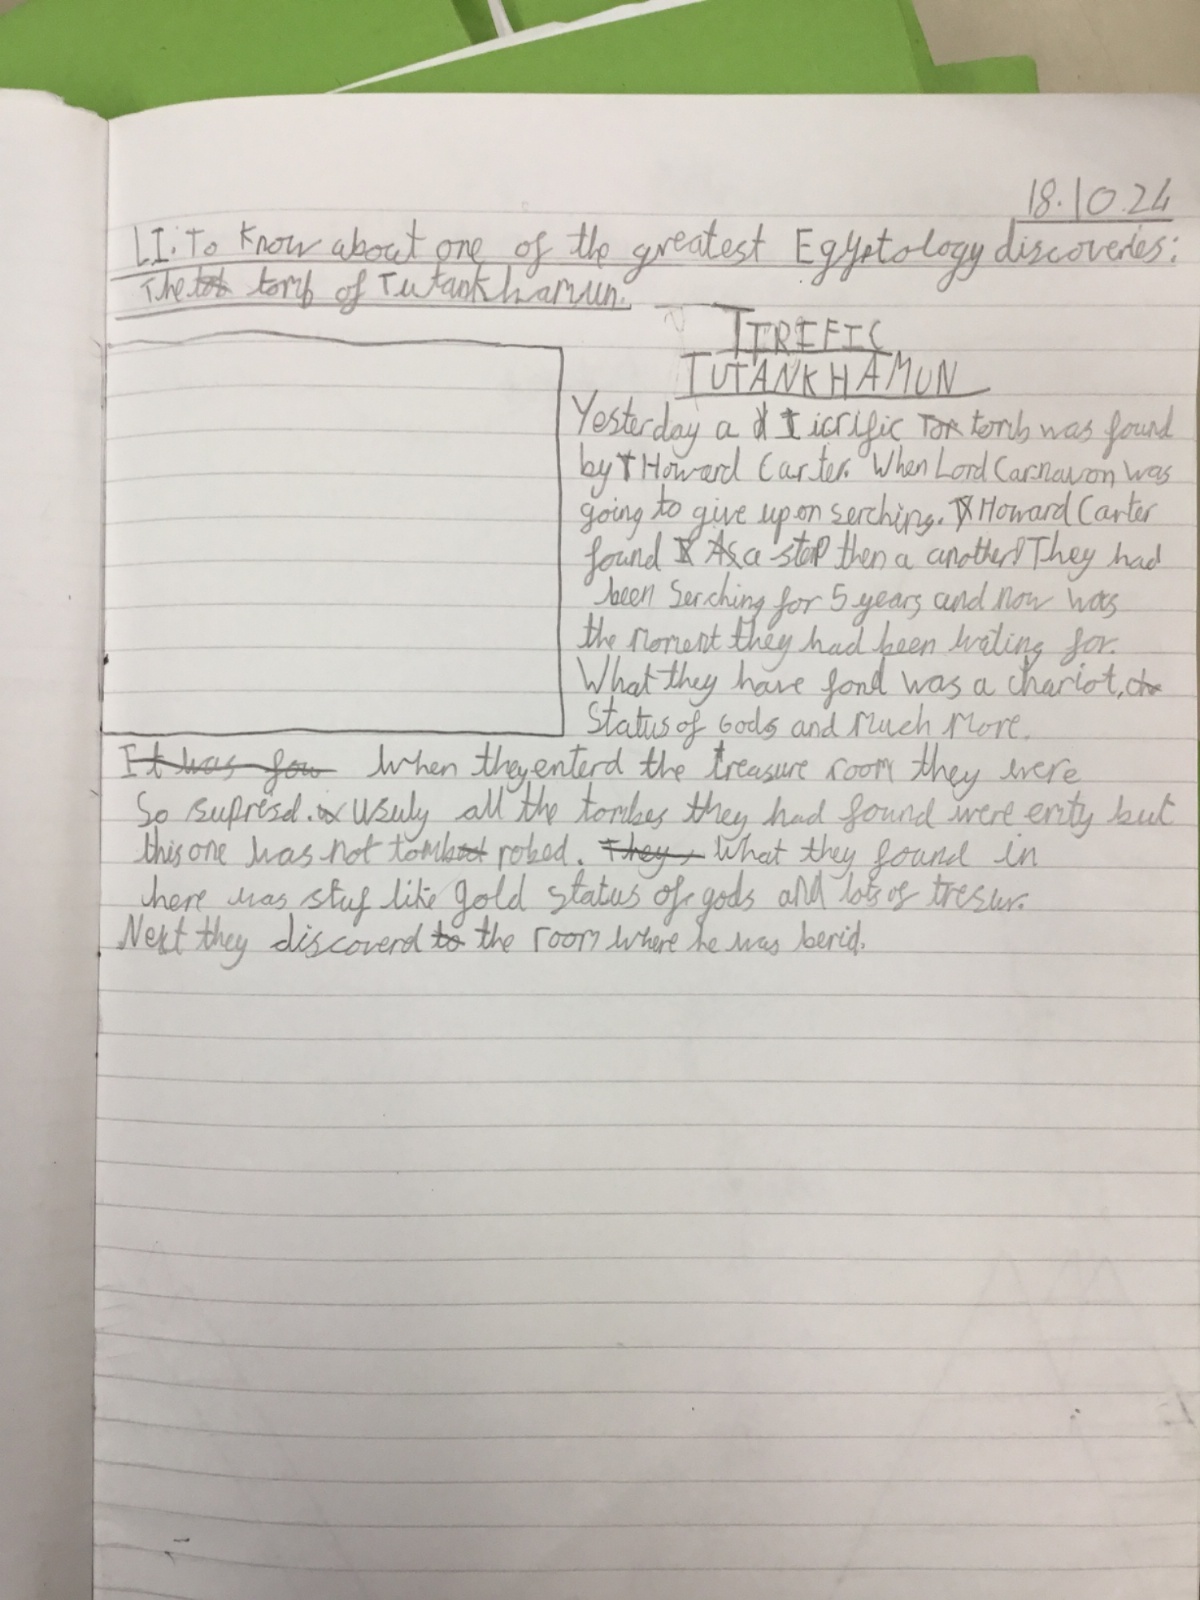 18.10.24
LI: To Know about one of the greatest Egyptology discoveries:
The tomb of Tutankhamun.
TIRIFIC
TUTANKHAMUN
Yesterday a tomb was found
by Howard Carter. When Lord Carnavon was
going to give up on serching. Howard Carter
found a step then a another! They had
been Serching for 5 years and now was
the moment they had been wating for.
What they have fond was a chariot,
Status of Gods and Much More.
It was fou When they enterd the treasure room they were
So supresd. Usuly all the tombes they had found were emty but
this one was not tomb robed. They What they found in
here was stuf like gold status of gods and lots of tresur.
Next they discoverd to the room where he was berid.